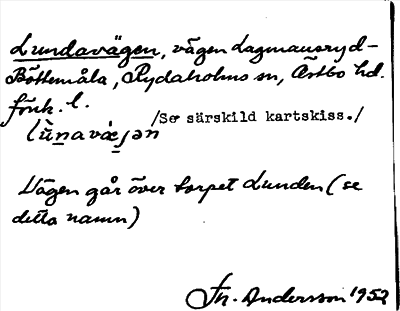 Lundavägen, vägen Lagmansryd-
Böttemåla, Rydaholms sn, Östbo hd.
Jönk. l.
/Se särskild kartskiss./
lùnavæ̀jən
Vägen går över torpet Lunden (se
detta namn)
Fr. Andersson 1952